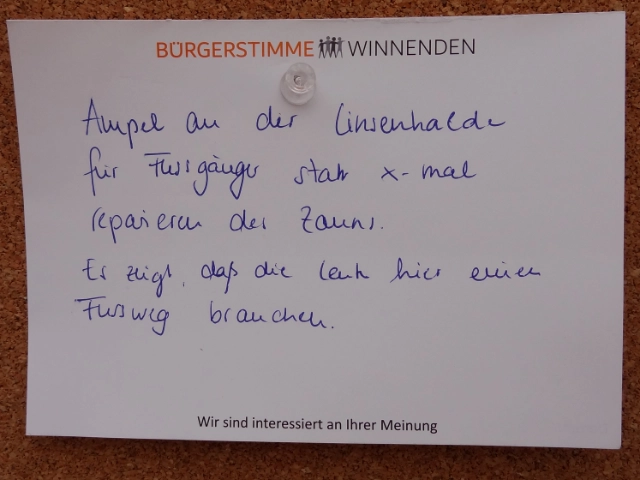 BÜRGERSTIMME WINNENDEN
Ampel an der Linsenhalde
für Fussgänger statt x-mal
reparieren des Zauns.
Es zeigt, daß die Leute hier einen
Fussweg brauchen.
Wir sind interessiert an Ihrer Meinung